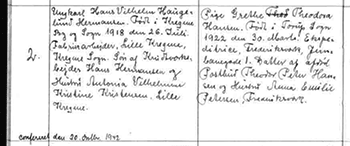 2.
Ungkarl Hans Vilhelm Hauge-
lund Hermansen. Født i Kregme
Sog og Sogn 1918 den 26. Juli.
Fabrikarbejder, Lille Kregme,
Kregme Sogn. Søn af
bejder Hans Hermansen og
Hustru Antonia Vilhelmine
Kirstine Kristensen, Lille
Kregme.
Pige Grethe Theodora
Hansen. Født i Torup Sogn
1922 den 30. Marts. Ekspe-
ditrice, Frederiksværk, Jern-
banegade 1. Datter af afdød
Postbud Theodor Peter Han-
sen og Hustru Anna Emilie
Petersen, Frederiksværk.
confereret den 20. Oktbr. 1942